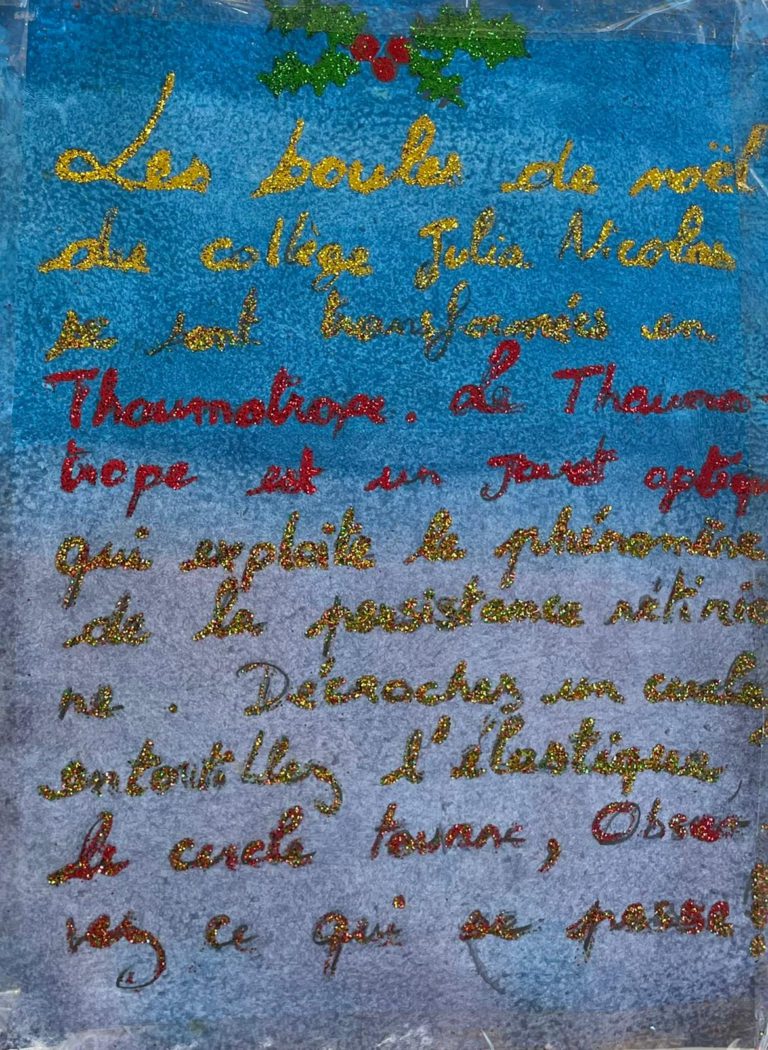 Les boules de noël
du collège Julia Nicolas
se sont transformées en
Thaumatrope. Le Thauma-
trope est un jouet optiq
qui exploite le phénomène
de la persistance rétinie
ne. Décrochez un cercle,
entortillez l'élastique,
le cercle tourne, Obser-
vez ce qui se passe!